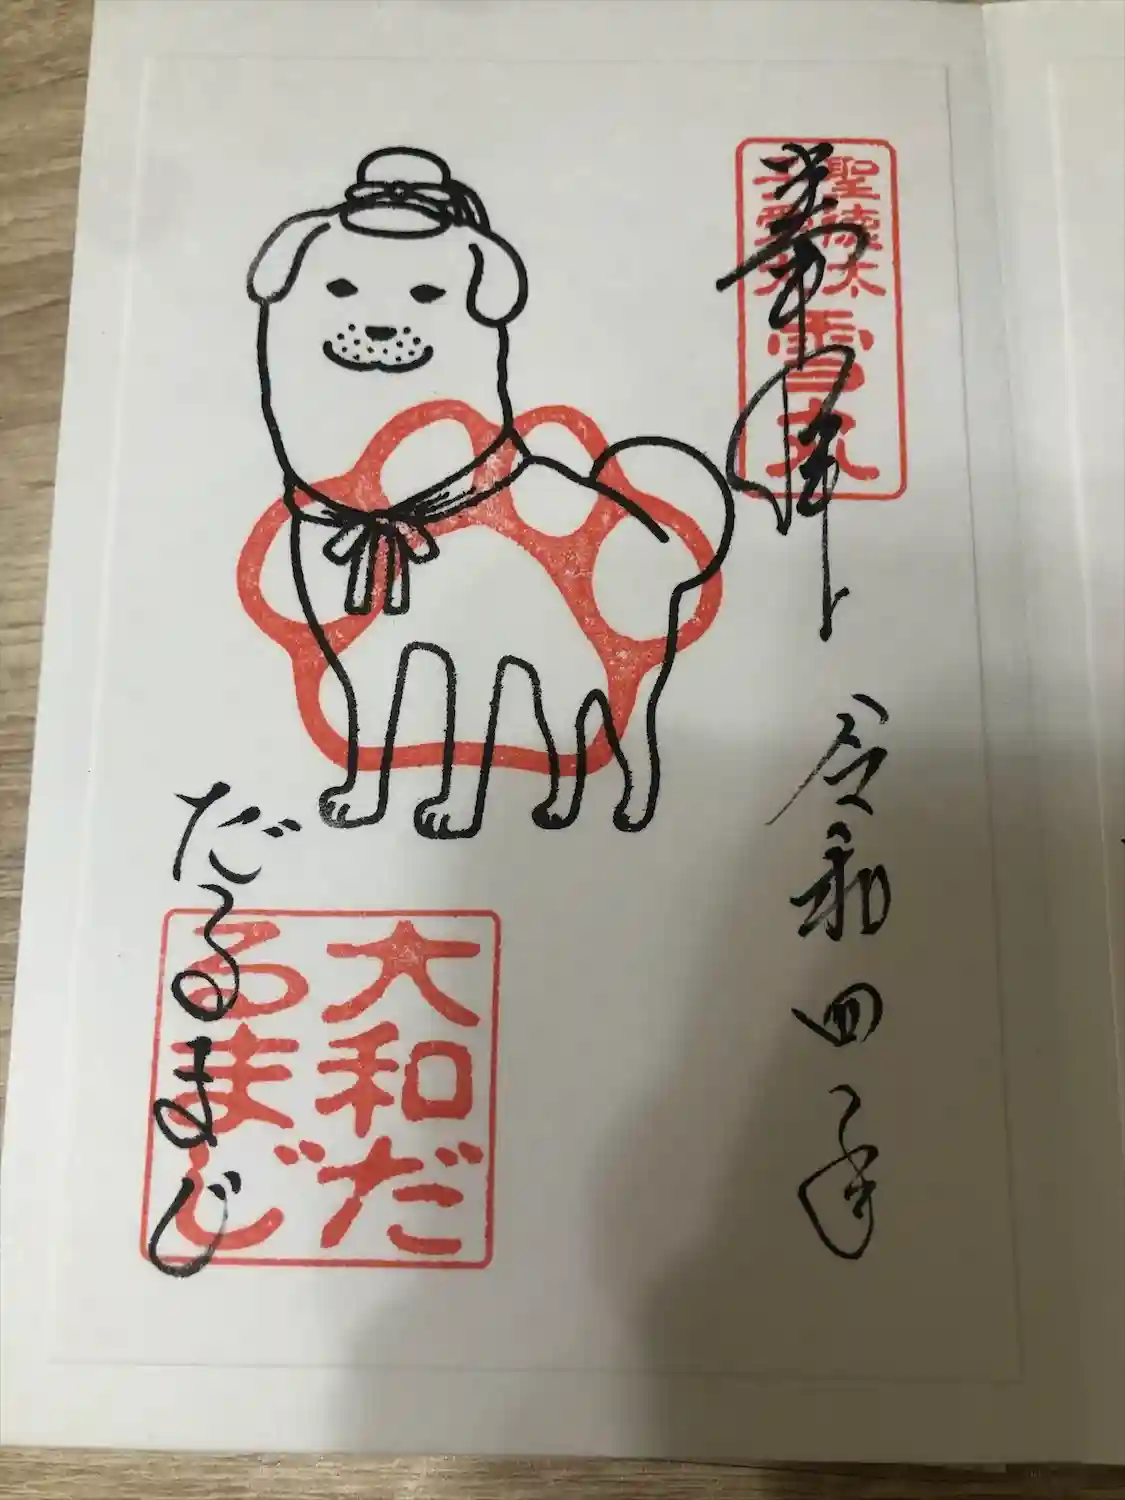 聖徳太
子愛犬
雪丸
奉拝
令和四年
大和だ
るまじ
だるまじ